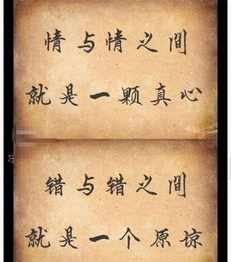 情与情之间
就是一颗真心
错与错之间
就是一个原谅